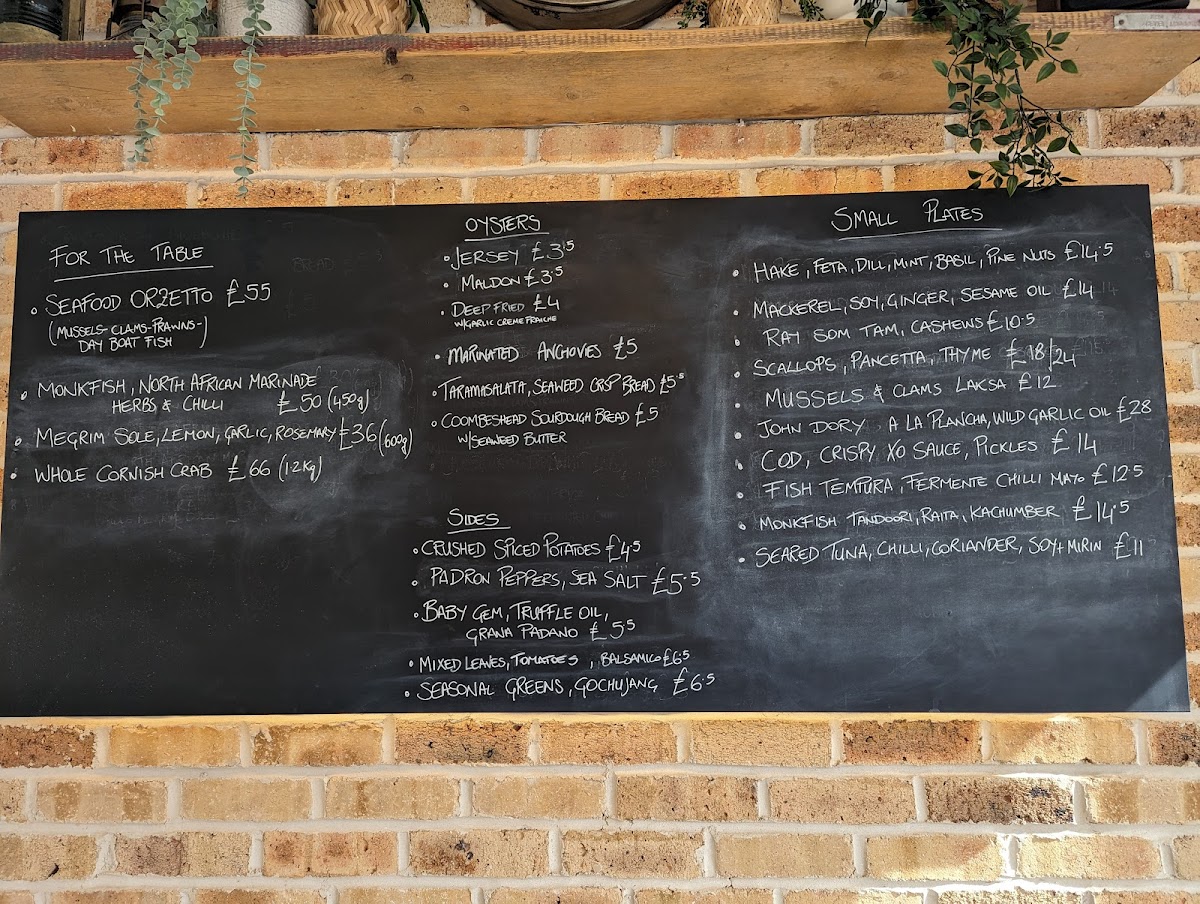 FOR THE TABLE
• SEAFOOD ORZETTO £55
(MUSSELS-CLAMS-PRAWNS-
DAY BOAT FISH)
• MONKFISH, NORTH AFRICAN MARINADE
HERBS & CHILLI £50 (450g)
• MEGRIM SOLE, LEMON, GARLIC, ROSEMARY £36 (600g)
• WHOLE CORNISH CRAB £66 (1.2Kg)
OYSTERS
• JERSEY £3.5
• MALDON £3.5
• DEEP FRIED £4
W/GARLIC CREME FRAICHE
• MARINATED ANCHOVIES £5
• TARAMASALATA, SEAWEED CRISP BREAD £5.5
• COOMBESHEAD SOURDOUGH BREAD £5
W/SEAWEED BUTTER
SIDES
• CRUSHED SPICED POTATOES £4.5
• PADRON PEPPERS, SEA SALT £5.5
• BABY GEM, TRUFFLE OIL,
GRANA PADANO £5.5
• MIXED LEAVES, TOMATOES, BALSAMICO £6.5
• SEASONAL GREENS, GOCHUJANG £6.5
SMALL PLATES
• HAKE, FETA, DILL, MINT, BASIL, PINE NUTS £14.5
• MACKEREL, SOY, GINGER, SESAME OIL £14
• RAY SOM TAM, CASHEWS £10.5
• SCALLOPS, PANCETTA, THYME £18/24
• MUSSELS & CLAMS LAKSA £12
• JOHN DORY A LA PLANCHA, WILD GARLIC OIL £28
• COD, CRISPY XO SAUCE, PICKLES £14
• FISH TEMPURA, FERMENTE CHILLI MAYO £12.5
• MONKFISH TANDOORI, RAITA, KACHUMBER £14.5
• SEARED TUNA, CHILLI, CORIANDER, SOY+MIRIN £11